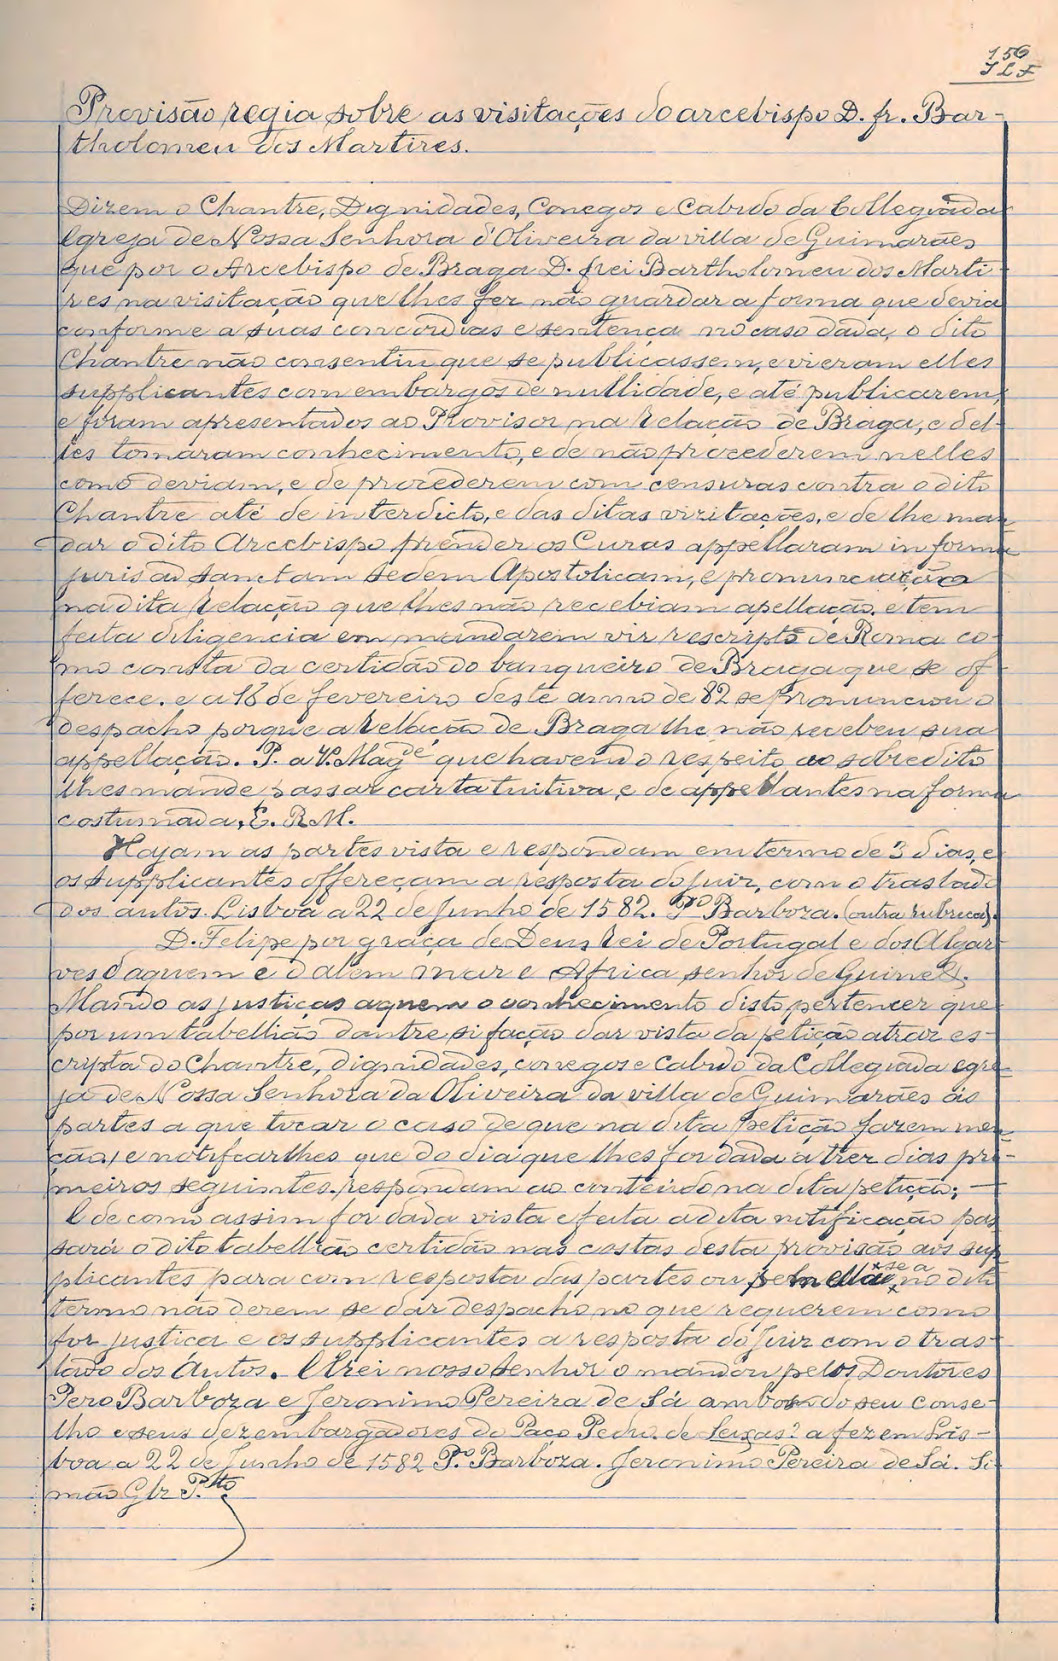 156
JLF
Provisão regia sobre as visitações do arcebispo D. fr. Bar-
tholomeu dos Martires.
Dizem o Chantre, Dignidades, Conegos e Cabido da Collegiada
Egreja de Nossa Senhora d'Oliveira da villa de Guimarães
que por o Arcebispo de Braga D. frei Bartholomeu dos Marti-
res na visitação que lhes fez não guardar a forma que devia
conforme a suas concordias e sentença no caso dada, o dito
Chantre não consentiu que se publicassem, e vieram elles
supplicantes com embargos de nullidade, e até publicarem,
e foram apresentados ao Provisor na Relação de Braga, e del-
les tomaram conhecimento, e de não procederem nelles
como deviam, e de procederem com censuras contra o dito
Chantre até de interdicto, e das ditas vizitações, e de lhe man
dar o dito Arcebispo prender os Curas appellaram in forma
juris ad sanctam sedem Apostolicam, e pronunciação
na dita Relação que lhes não recebiam apellação, e tem
feita diligencia em mandarem vir rescripto de Roma co-
mo consta da certidão do banqueiro de Braga que se of-
ferece. e a 18 de fevereiro deste anno de 82 se pronunciou o
despacho porque a Rellação de Braga lhe não recebeu sua
appellação. P. a V. Mag.de que havendo respeito ao sobredito
lhes mande passar carta tuitiva, e de appellantes na forma
costumada, E. R. M.
Hajam as partes vista e respondam em termo de 3 dias, e
os supplicantes offereçam a resposta do juiz, com o traslado
dos autos. Lisboa a 22 de Junho de 1582. P.o Barboza. (outra rubrica).
D. Felipe por graça de Deus rei de Portugal e dos Algar-
ves d'aquem e d'alem mar e Africa senhor de Guiné &.
Mando as justiças a quem o conhecimento disto pertencer que
por um tabellião dantre si fação dar vista da petição atraz es-
cripta do Chantre, dignidades, conegos e Cabido da Collegiada egre-
ja de Nossa Senhora da Oliveira da villa de Guimarães ás
partes a que tocar o caso de que na dita petição fazem men
ção, e notificarlhes que do dia que lhes for dada a trez dias pri-
meiros seguintes respondam ao conteúdo na dita petição; —
E de como assim for dada vista e feita a dita notificação pas
sará o dito tabellião certidão nas costas desta provisão aos sup
plicantes para com resposta das partes ou sem ella se a no dito
termo não derem se dar despacho no que requerem como
for justiça e os supplicantes a resposta do Juiz com o tras-
lado dos Autos. El rei nosso senhor o mandou pelos Doutores
Pero Barboza e Jeronimo Pereira de Sá ambos do seu conse-
lho e seus dezembargadores do Paço Pedro de Seixas? a fez em Lis-
boa a 22 de Junho de 1582 P.o Barboza. Jeronimo Pereira de Sá. Si
mão Glz P.to